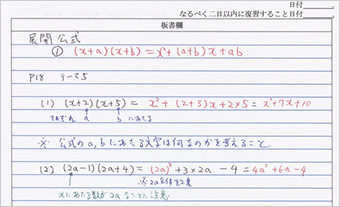 日付
なるべく二日以内に復習すること日付
板書欄
展開公式
① (x+a)(x+b)=x²+(a+b)x+ab
P18 テーマ5
(1) (x+2)(x+5)= x²+(2+5)x+2×5=x²+7x+10
それぞれ a b にあたる
※ 公式のa,bにあたる文字は何なのかを考えること
(2) (2a-1)(2a+4)=(2a)²+3×2a-4=4a²+6a-4
※2a全体を2乗
xにあたる数が2aなことに注意